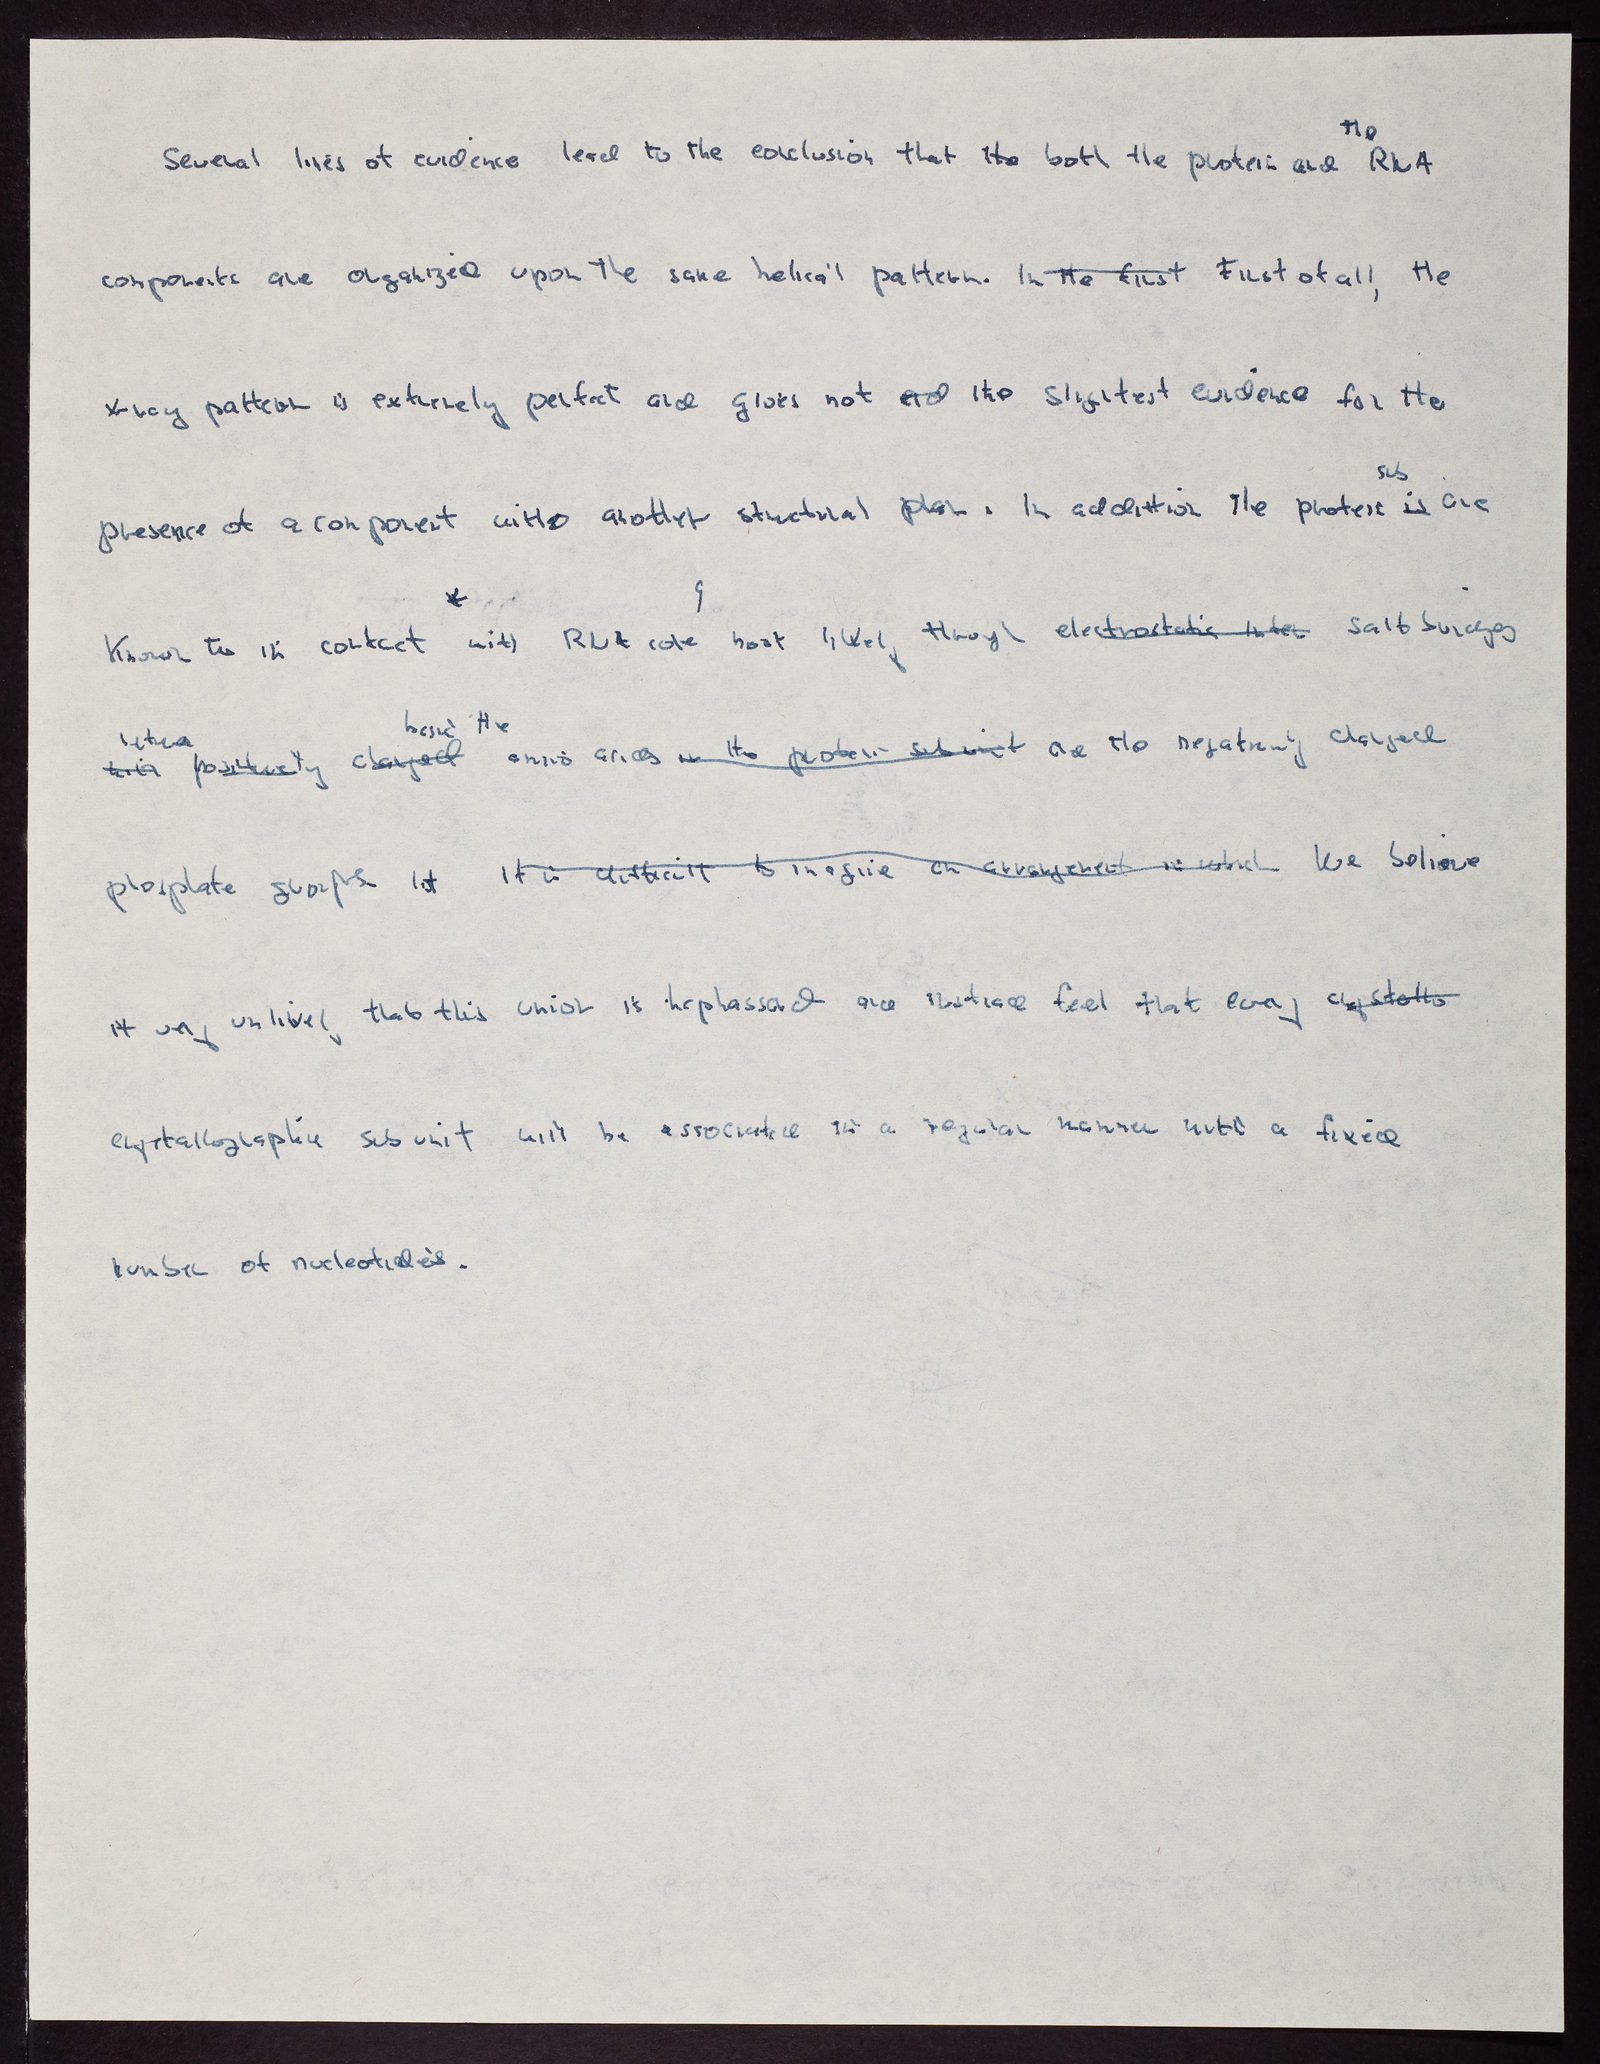 the
Several lines of evidence lead to the conclusion that the both the protein and RNA
components are organized upon the same helical pattern. In the first First of all, the
x-ray pattern is extremely perfect and gives not and the slightest evidence for the
sub
presence of a component with another structural plan. In addition the protein is are
known to in contact with RNA core most likely through electrostatic inter salt bridges
between basic the
positively charged amino acids in the protein subunit and the negatively charged
phosphate groups It It is difficult to imagine an arrangement in which We believe
it very unlikely that this union is haphazard and instead feel that every crystallo
crystallographic subunit will be associated in a regular manner with a fixed
number of nucleotides.